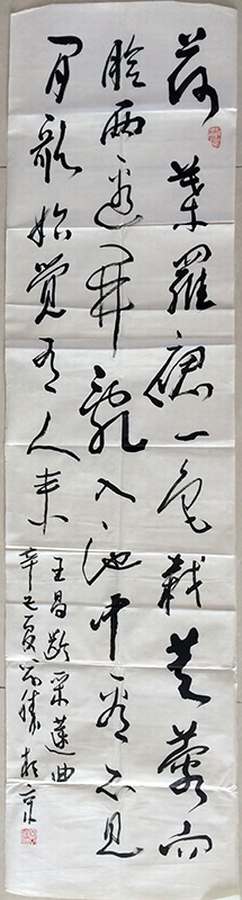 荷葉羅裙一色裁芙蓉向
脸两边開亂入池中看不见
闻歌始觉有人来
王昌龄采莲曲
辛巳夏 於京